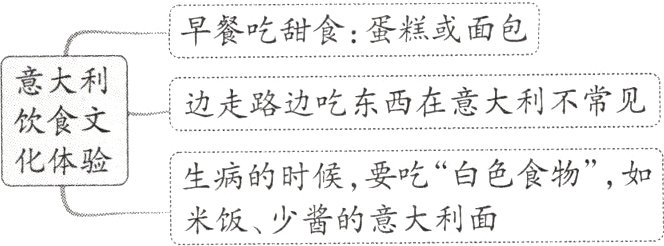 意大利
饮食文
化体验
早餐吃甜食：蛋糕或面包
边走路边吃东西在意大利不常见
生病的时候，要吃“白色食物”，如
米饭、少酱的意大利面